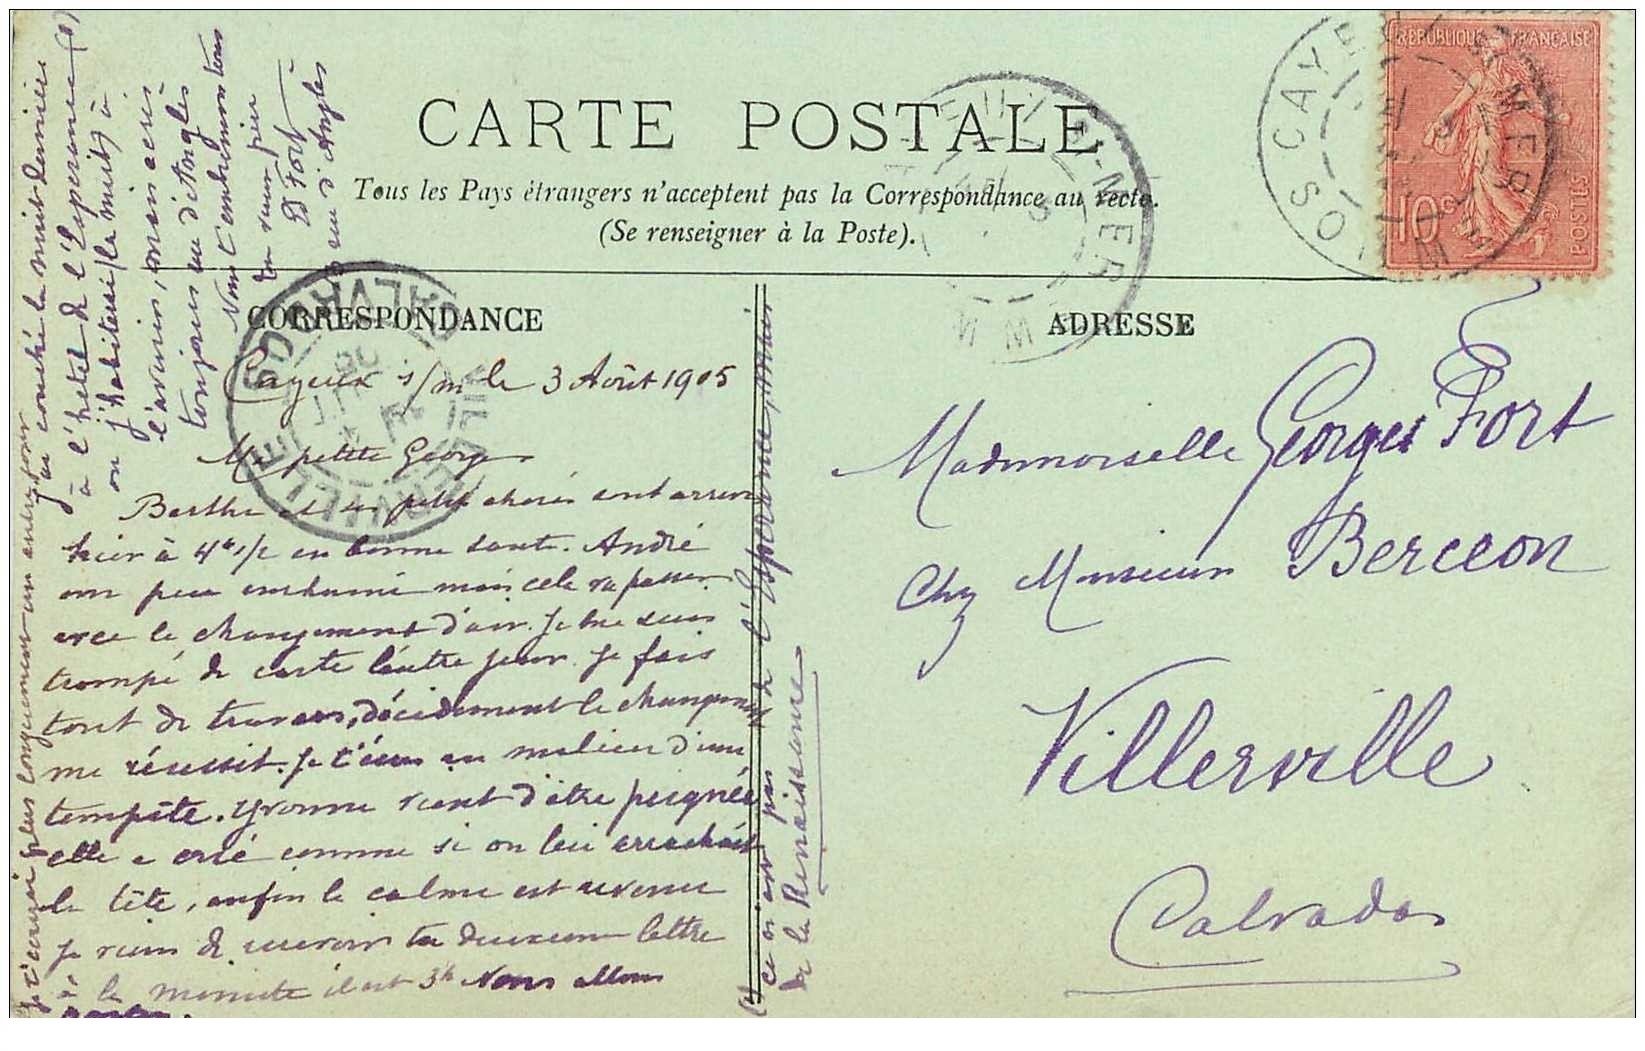 CARTE POSTALE
Tous les Pays étrangers n'acceptent pas la Correspondance au recto.
(Se renseigner à la Poste).
CORRESPONDANCE
ADRESSE
REPUBLIQUE FRANÇAISE
10c
POSTES
CALVADOS
Cayeux s/m le 3 Août 1905
Ma petite George
Berthe et ses petits chéris sont arrivés
hier à 4h 1/2 en bonne santé. André
un peu enrhumé mais cela va passer
avec le changement d'air. Je me suis
trompé de carte l'autre jour. Je fais
tout de travers, décidément le changement
me réussit. Je t'écris au milieu d'une
tempête. Yvonne vient d'être peignée
elle a crié comme si on lui arrachait
la tête, enfin le calme est revenu
Je viens de recevoir ta deuxième lettre
à la minute il est 3h Nous allons
Je t'écrirai plus longuement un autre jour
J'ai couché la nuit dernière
à l'hôtel de l'Esperance (1)
où j'habiterai (la nuit) à
l'avenir, mais écris
toujours rue d'Angles
Nous t'embrassons tous
ton vieux père
D Fort
rue d'Angles
(1) ce n'est pas de l'Esperance, mais
de la Renaissance
Mademoiselle Georges Fort
Chez Monsieur Berceon
Villerville
Calvados